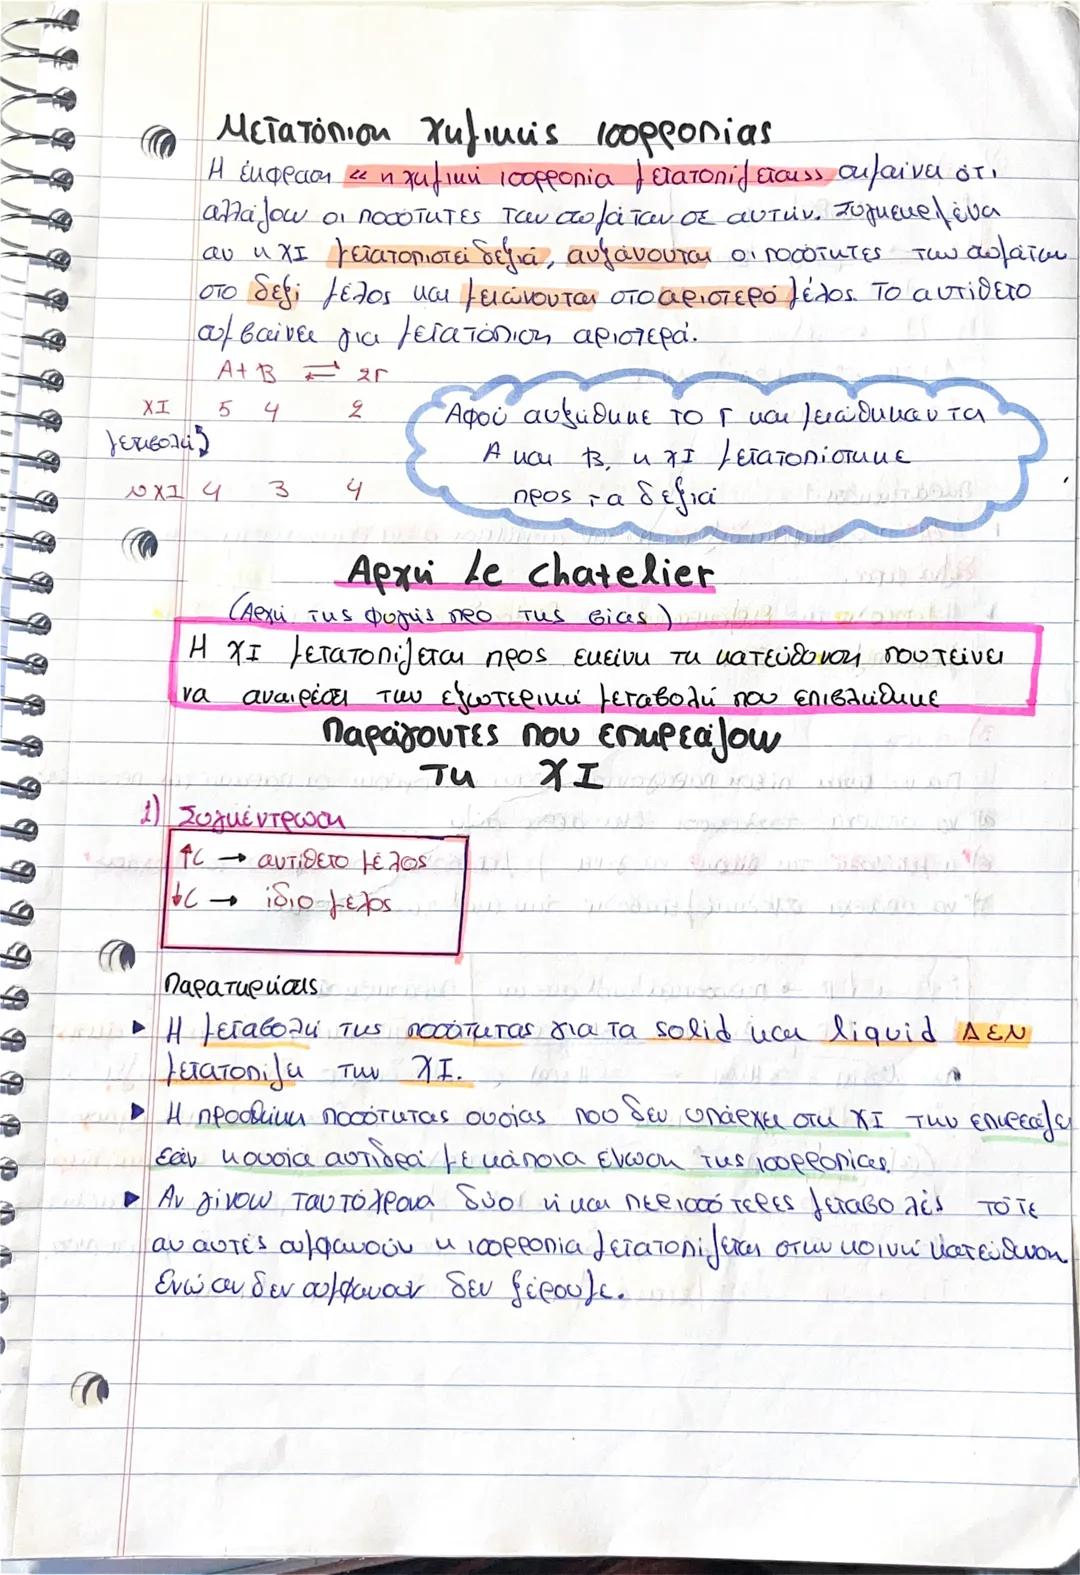 Μετατόπιση χημικής ισορροπίας
Η έκφραση «η χημική ισορροπία μετατοπίζεται» σημαίνει ότι
αλλάζουν οι ποσότητες των σωμάτων σε αυτήν. Συγκεκριμένα
αν η ΧΙ μετατοπιστεί δεξιά, αυξάνονται οι ποσότητες των σωμάτων
στο δεξί μέλος και μειώνονται στο αριστερό μέλος. Το αντίθετο
συμβαίνει για μετατόπιση αριστερά.
Α+ Β ⇌ 2Γ
ΧΙ 5 4 2
μεταβολή
ΝΧΙ 4 3 4
Αφού αυξήθηκε το Γ και μειώθηκαν τα
Α και Β, η ΧΙ μετατοπίστηκε
προς τα δεξιά
Αρχή Le chatelier
(Αρχή της φυγής προ της βίας)
Η ΧΙ μετατοπίζεται προς εκείνη τη κατεύθυνση που τείνει
να αναιρέσει την εξωτερική μεταβολή που επιβλήθηκε
Παράγοντες που επηρεάζουν
τη ΧΙ
1) Συγκέντρωση
↑C → αντίθετο μέλος
↓C → ίδιο μέλος
Παρατηρήσεις
▸ Η μεταβολή της ποσότητας για τα solid και liquid ΔΕΝ
μετατοπίζει την ΧΙ.
▸ Η προσθήκη ποσότητας ουσίας που δεν υπάρχει στη ΧΙ την επηρεάζει
εάν η ουσία αντιδρά με κάποια ένωση της ισορροπίας.
▸ Αν γίνουν ταυτόχρονα δύο ή και περισσότερες μεταβολές τότε
αν αυτές συμφωνούν η ισορροπία μετατοπίζεται στην κοινή κατεύθυνση
Ενώ αν δεν συμφωνούν δεν ξέρουμε.